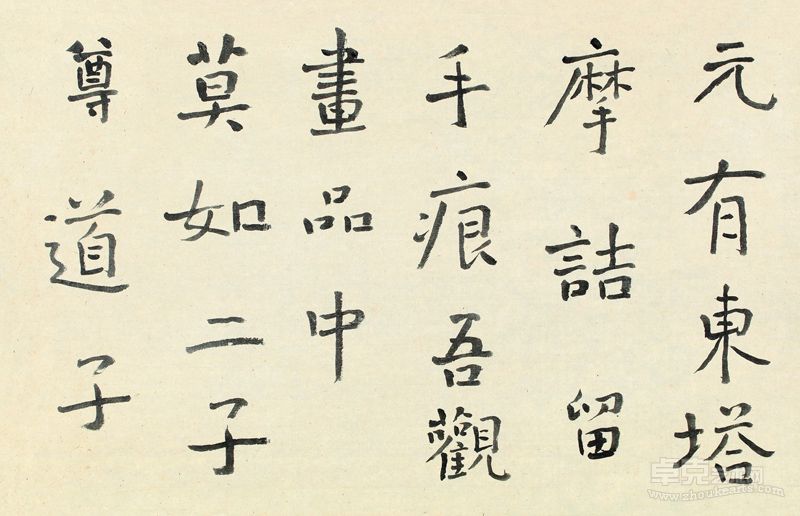 元有東塔
摩詰留
手痕吾觀
畫品中
莫如二子
尊道子
卓克艺术网
www.zhoukearts.com